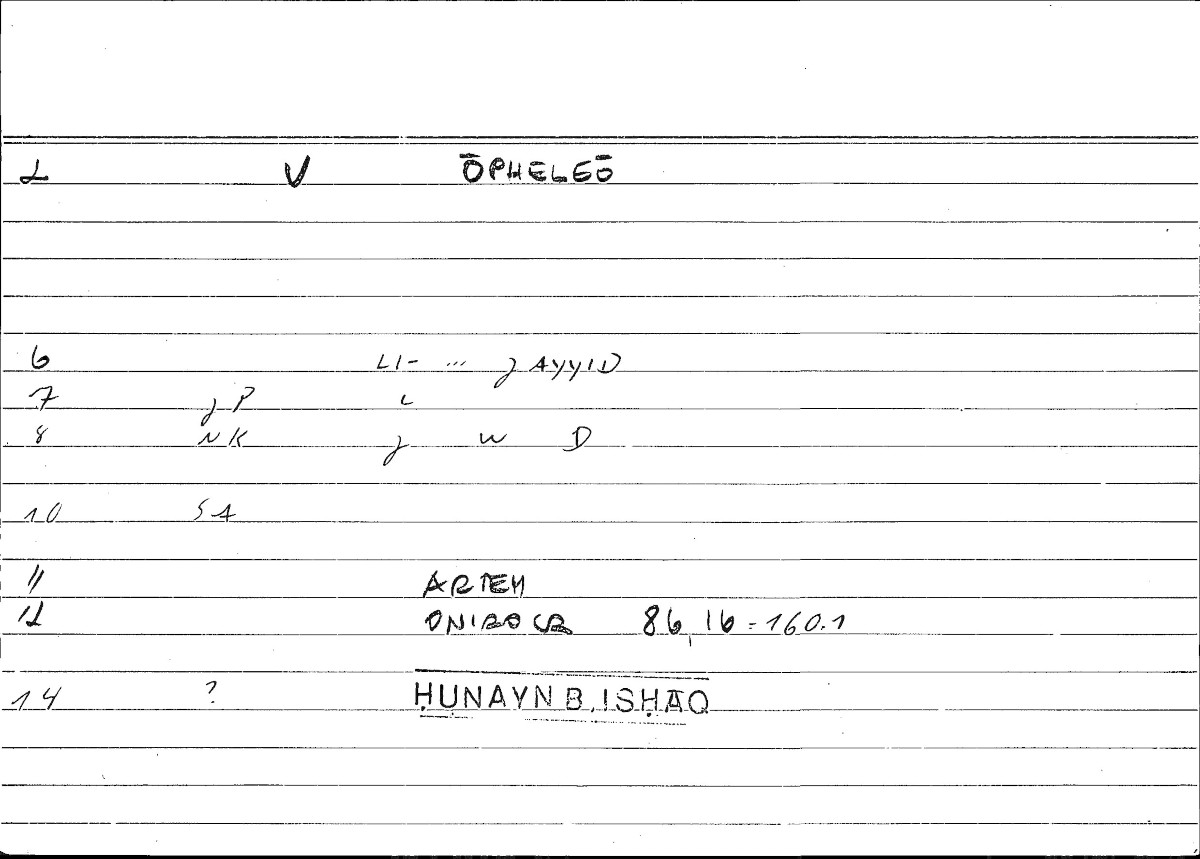 2 V ŌPHELEŌ
6 LI- ... J AYYID
7 J P L
8 NK J W D
10 SA
11 ARTEM
12 ONIROCR 86, 16 = 160.1
14 ? ḤUNAYN B. ISḤĀQ